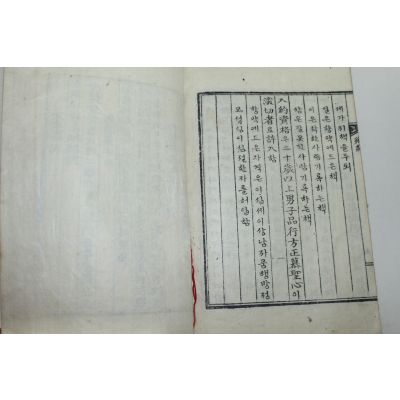 책을두되
향약에드는책
사람기록하는책
사람기록하는책
入約資格은二十歲以上男子品行方正慕聖心이
深切者로許入함
향약에드는자격은이십세이상남자품행방정
모성심이심절한자를허입함